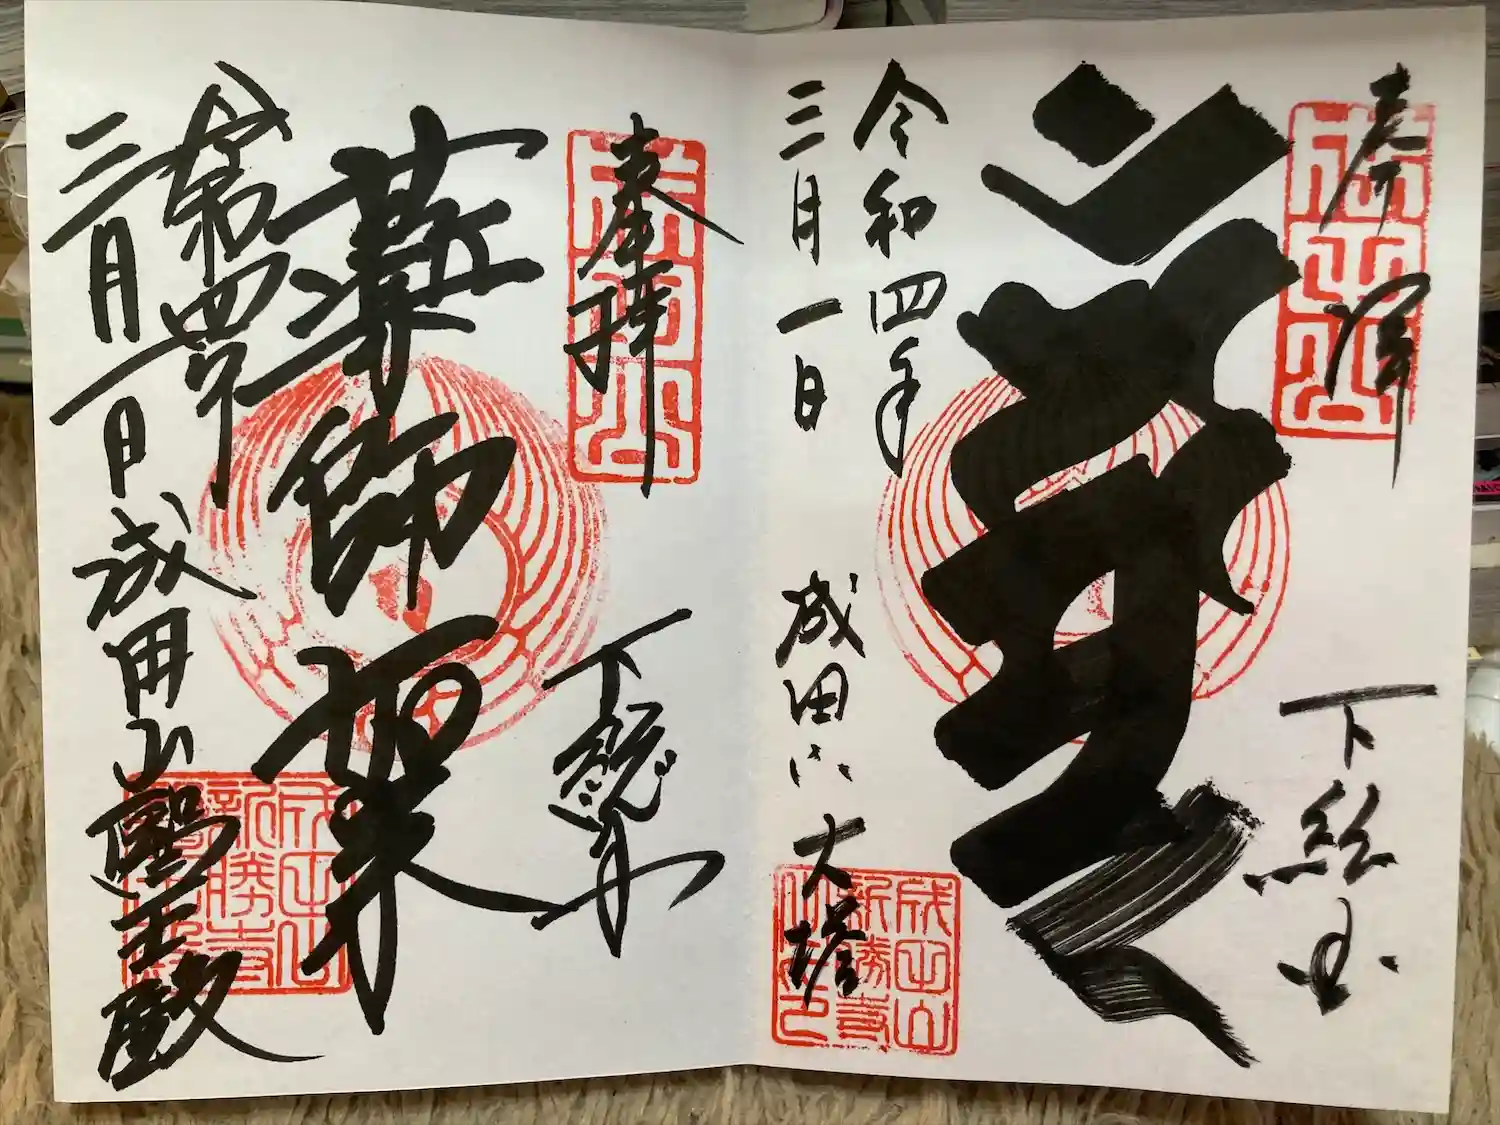 奉拝
下総
令和四年
三月一日 成田山 大塔
成田山
成田山
新勝寺
奉拝
下總
薬師如来
令和四年
三月一日 成田山醫王殿
成田山
成田山
新勝寺